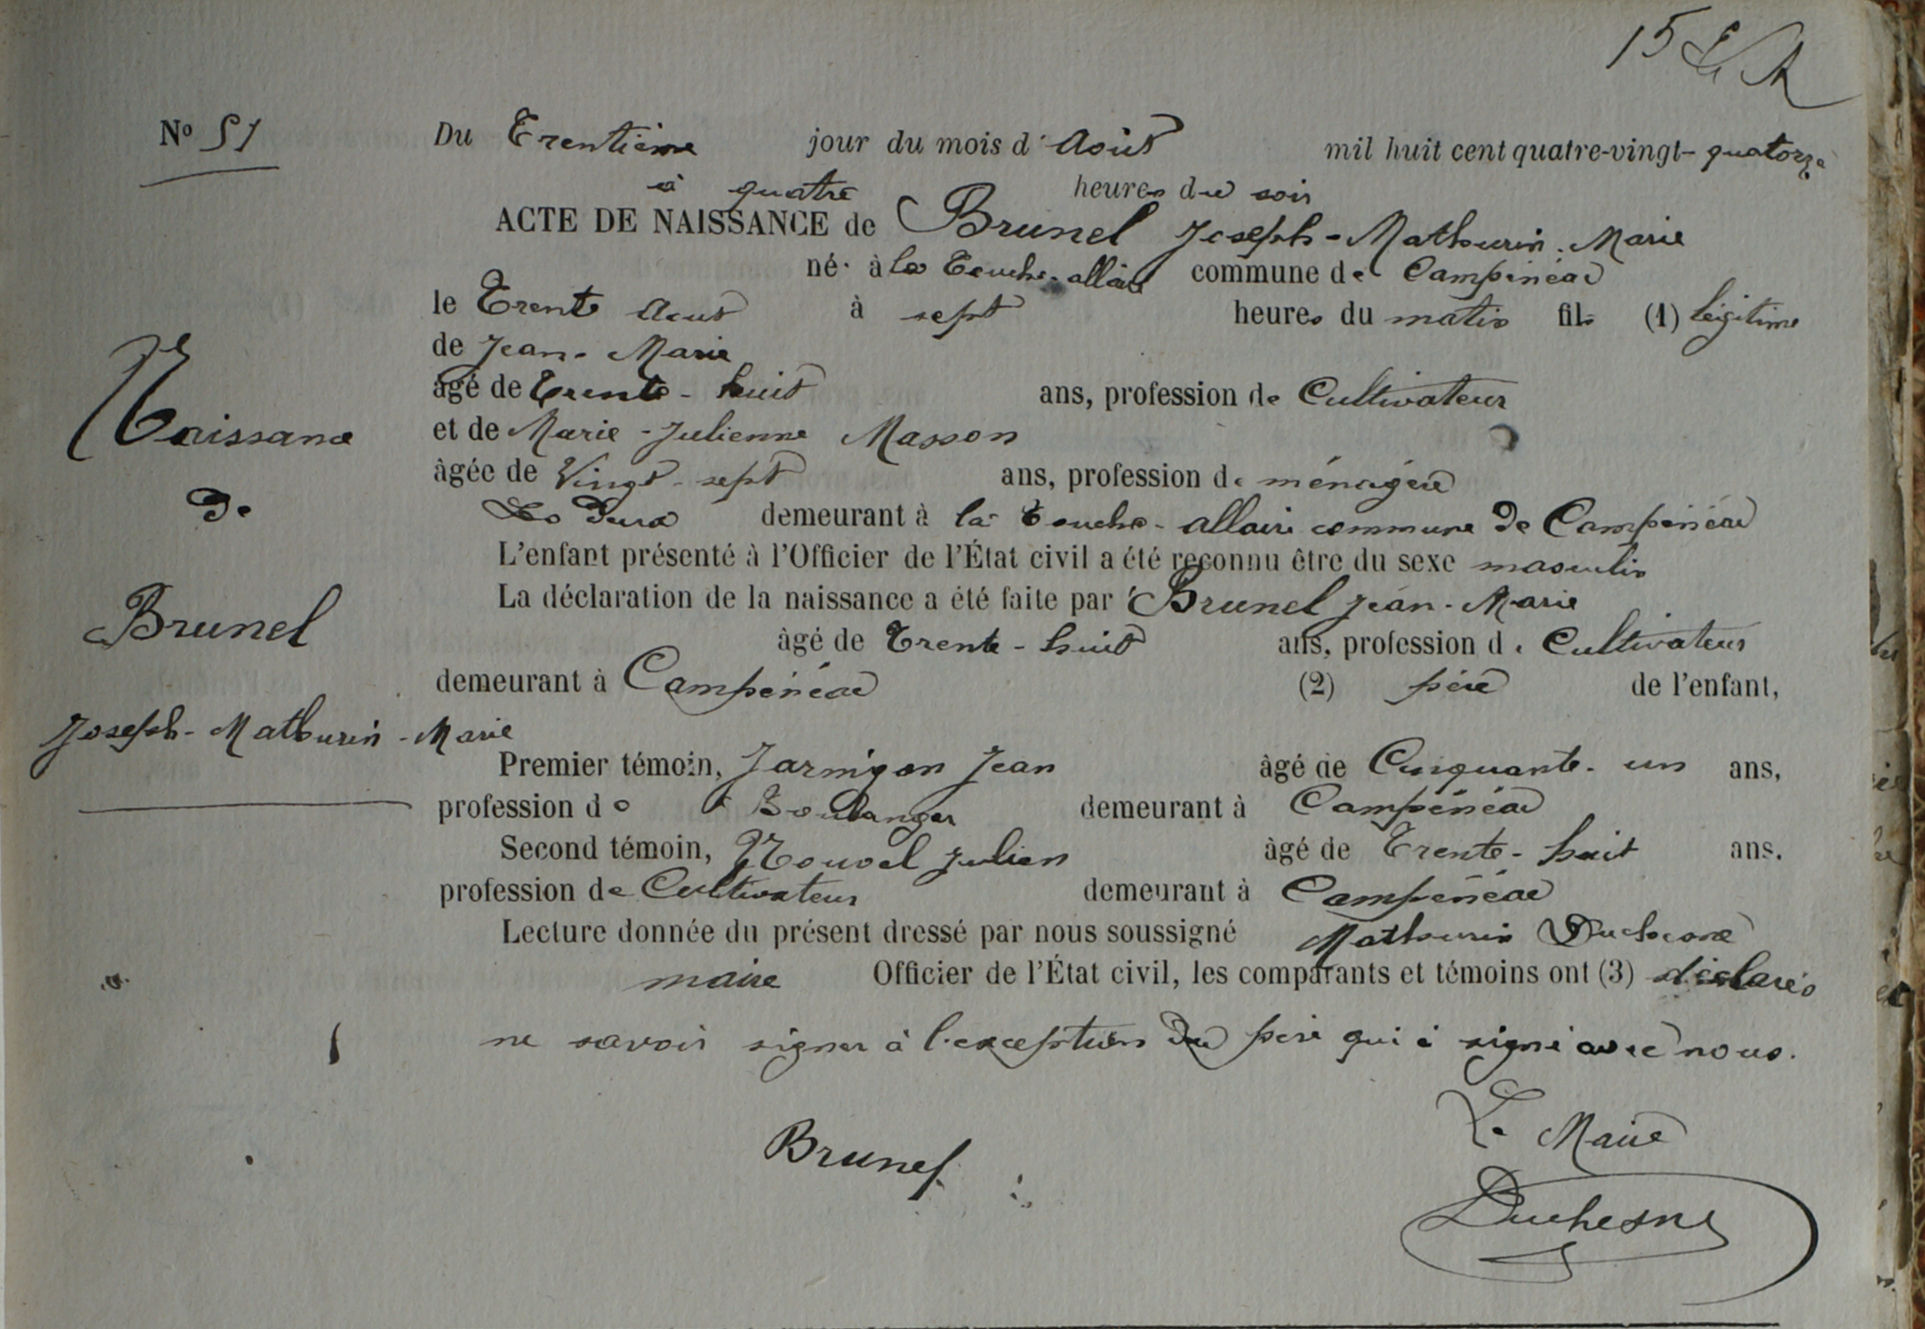 15
N° 51
Du Trentième jour du mois d'Août mil huit cent quatre-vingt-quatorze
à quatre heures du soir
ACTE DE NAISSANCE de Brunel Joseph-Mathurin-Marie
né à la Touche-allaire commune de Campénéac
le Trente Aout à sept heures du matin fils (1) légitime
de Jean-Marie
âgé de Trente-huit ans, profession de Cultivateur
et de Marie-Julienne Masson
âgée de Vingt-sept ans, profession de ménagère
demeurant à la Touche-allaire commune de Campénéac
L'enfant présenté à l'Officier de l'État civil a été reconnu être du sexe masculin
La déclaration de la naissance a été faite par Brunel Jean-Marie
âgé de Trente-huit ans, profession de Cultivateur
demeurant à Campénéac (2) père de l'enfant,
Premier témoin, Jarnigon Jean âgé de Cinquante-un ans,
profession de Boulanger demeurant à Campénéac
Second témoin, Nouvel Julien âgé de Trente-huit ans.
profession de Cultivateur demeurant à Campénéac
Lecture donnée du présent dressé par nous soussigné Mathurin Duchesne
maire Officier de l'État civil, les comparants et témoins ont (3) déclarés
ne savoir signer à l'exception du père qui a signé avec nous.
Brunel
Le Maire
Duchesne
Naissance
de
Brunel
Joseph-Mathurin-Marie